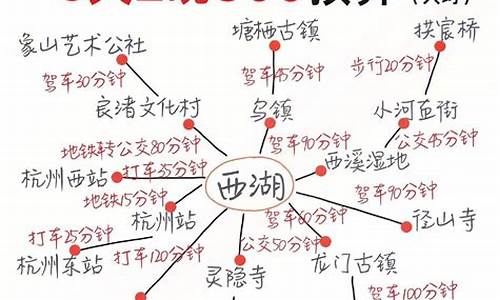 象山艺术公社
塘栖古镇
拱宸桥
驾车30分钟
驾车45分钟
步行20分钟
良渚文化村
乌镇
小河直街
地铁转公交80分钟
驾车90分钟
公交45分钟
打车35分钟
西溪湿地
杭州西站
西湖
地铁15分钟
驾车90分钟
杭州站
驾车60分钟
径山寺
打车25分钟
公交50分钟
打车120分钟
杭州东站
灵隐寺
龙门古镇
驾车100分钟